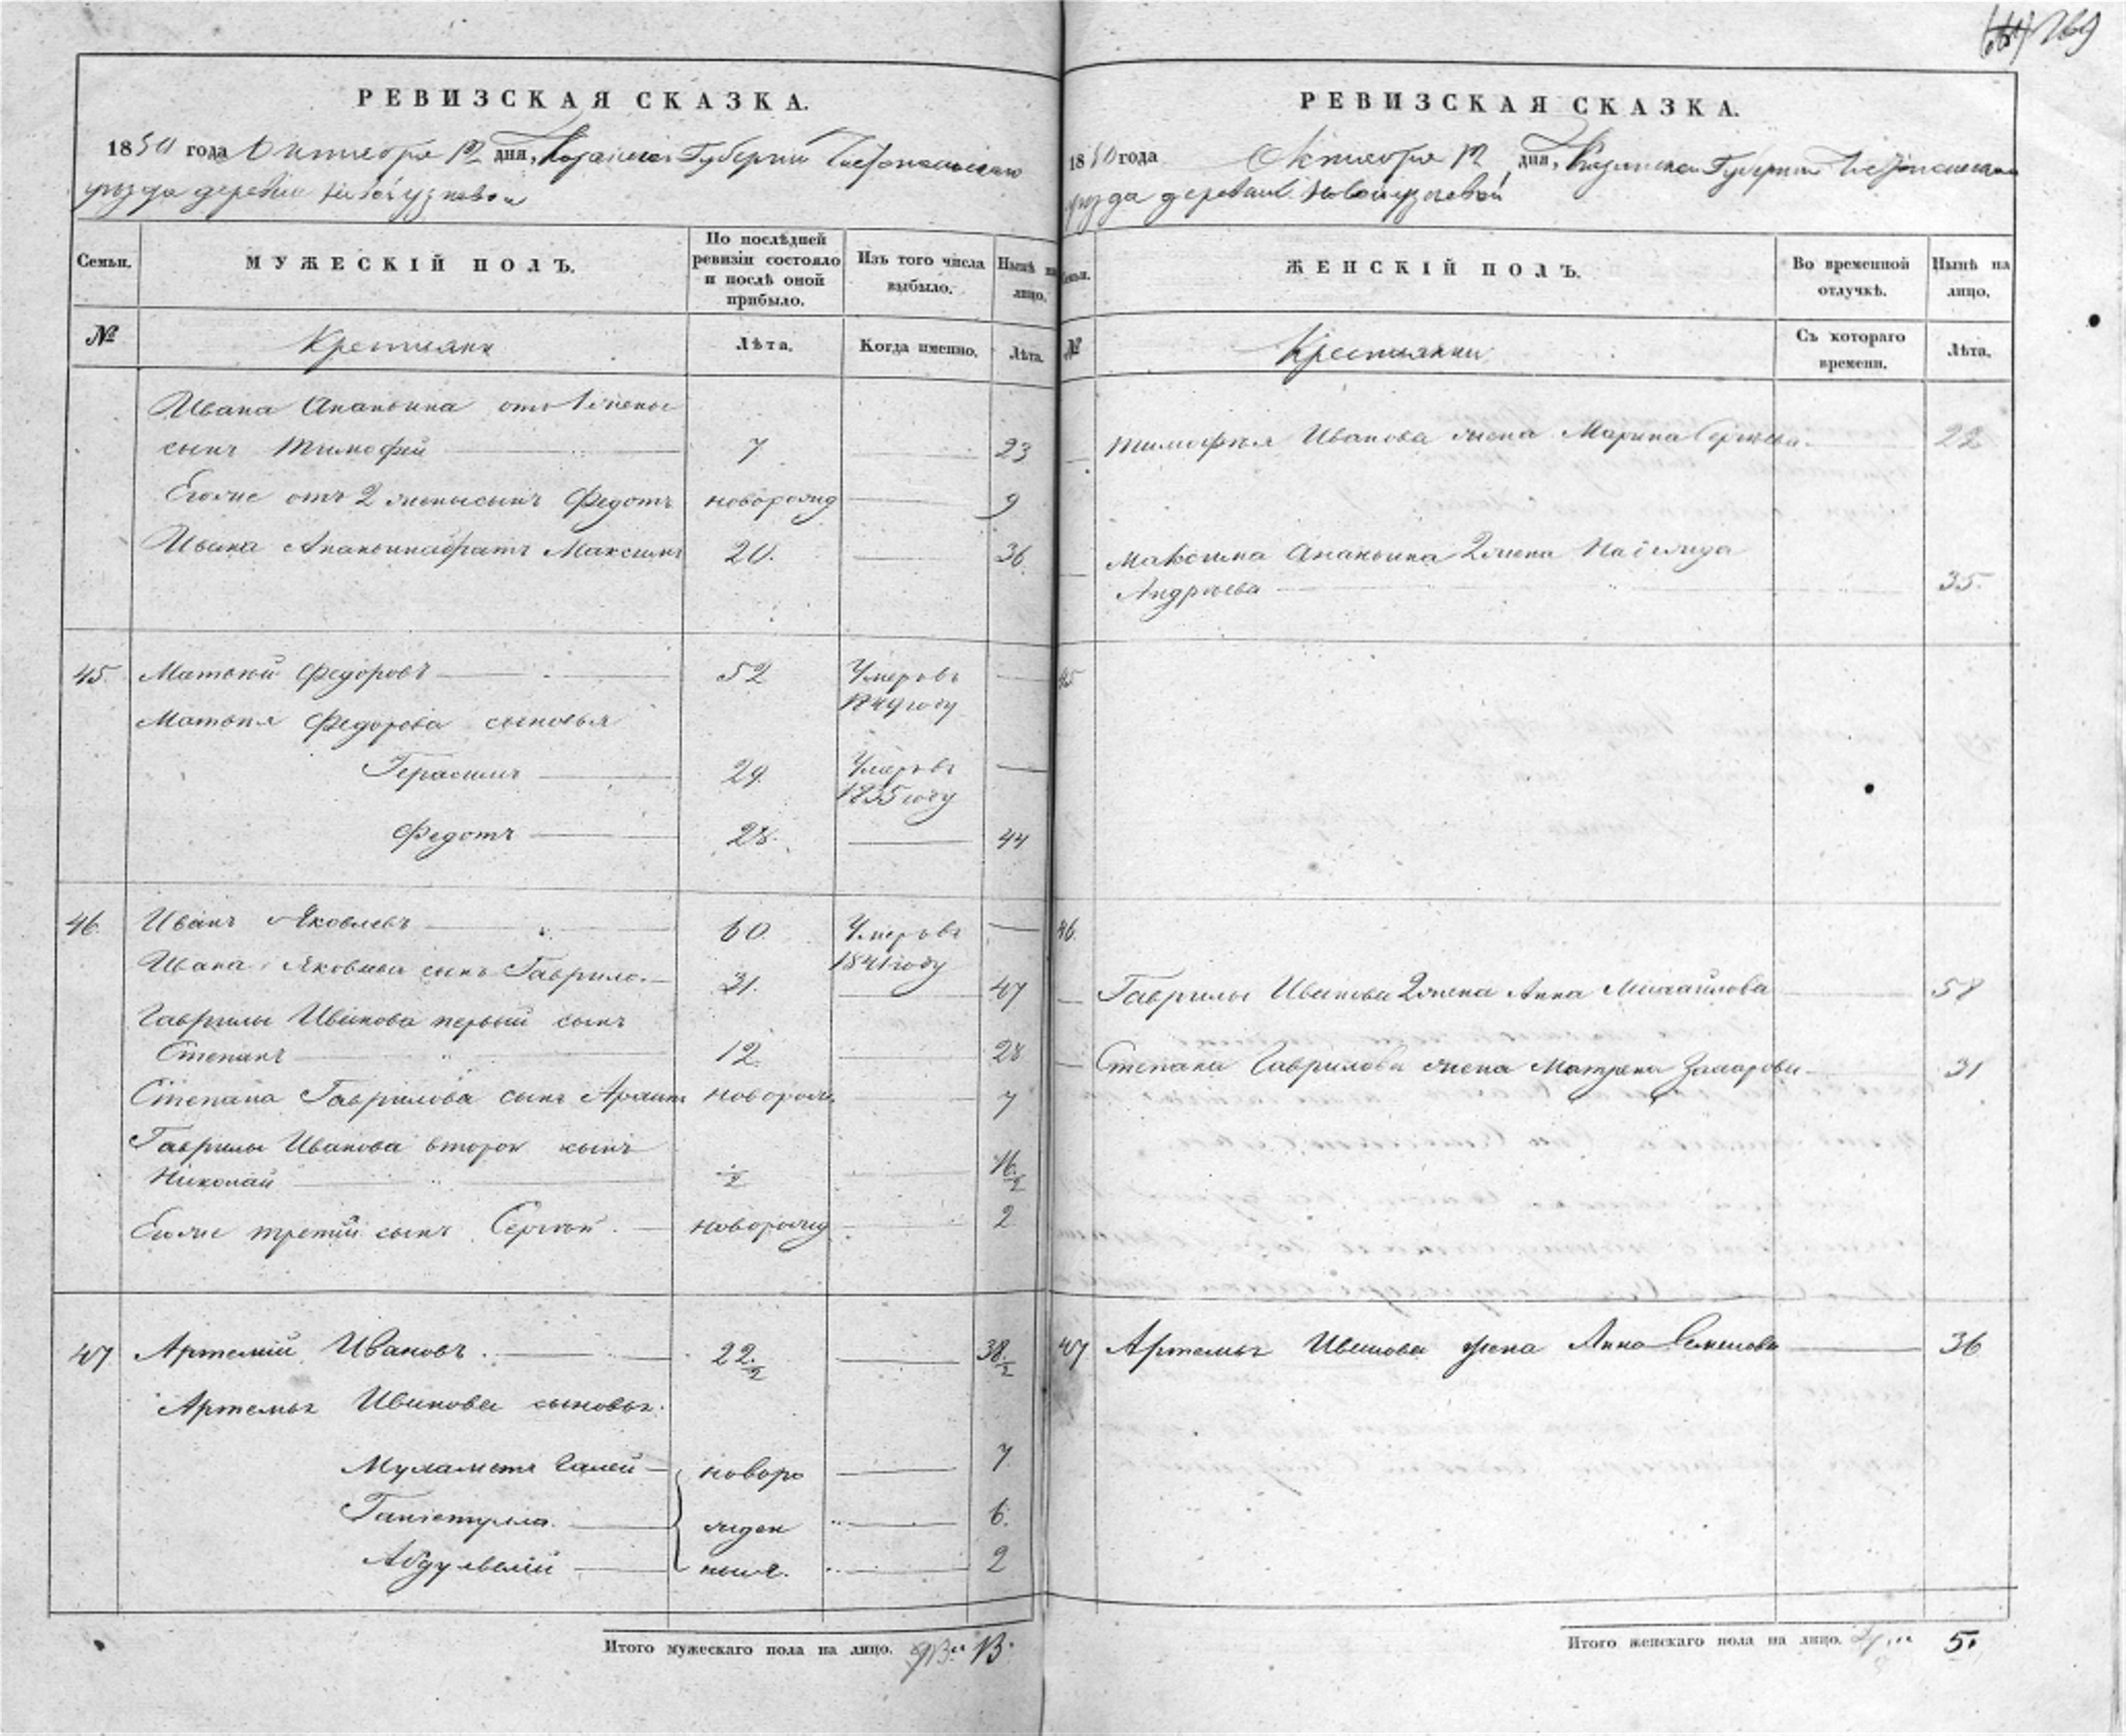 269
РЕВИЗСКАЯ СКАЗКА.
1850 года Октября 12 дня, Казанской Губернии Чистопольскаго
уезда деревни Новоузеевой
Семьи.
МУЖЕСКІЙ ПОЛЪ.
По послѣдней
ревизіи состояло
и послѣ оной
прибыло.
Изъ того числа
выбыло.
Нынѣ на
лицо.
№
Крестьяне
Лѣта.
Когда именно.
Лѣта.
Ивана Ананьина отъ 1 жены
сынъ Тимофей 7 23
Егоже отъ 2 жены сынъ Федотъ новорожд 9
Ивана Ананьина братъ Максимъ 20. 36.
45. Матвей Федоровъ 52 Умеръ въ
1849 году
Матвея Федорова сыновья
Герасимъ 29. Умеръ въ
1835 году
Федотъ 28. 44
46. Иванъ Яковлевъ 60. Умеръ въ
1841 году
Ивана Яковлева сынъ Гаврило. 31. 47
Гаврилы Иванова первый сынъ
Степанъ 12. 28
Степана Гаврилова сынъ новорожд 7
Гаврилы Иванова второй сынъ
Николай 1/2 16 1/2
Егоже третий сынъ Сергей. новорожд 2
47 Артемий Ивановъ. 22 1/2 38 1/2
Артемья Иванова сыновья.
Мухаметъ Галей новоро 7
жден 6.
Абдулвалий ныя. 2
Итого мужескаго пола на лицо. 13.
РЕВИЗСКАЯ СКАЗКА.
1850 года Октября 12 дня, Казанской Губернии Чистопольскаго
уезда деревни Новоузеевой
Семьи.
ЖЕНСКІЙ ПОЛЪ.
Во временной
отлучкѣ.
Нынѣ на
лицо.
№
Крестьянки
Съ котораго
времени.
Лѣта.
Тимофея Иванова жена Марина Сергеева 22
Максима Ананьина 2 жена
Андреева 35.
45
46.
Гаврилы Иванова 2 жена Анна Михайлова 58
Степана Гаврилова жена Матрена Захарова 31
47 Артемья Иванова жена Анна Семенова 36
Итого женскаго пола на лицо. 5.